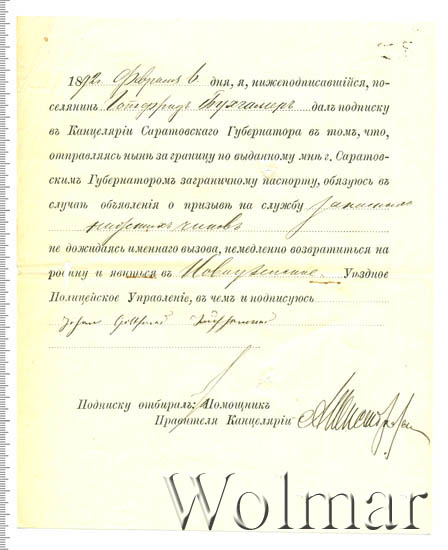 1892 г Февраля 6 дня, я, нижеподписавшійся, по-
селянинъ Готфридъ далъ подписку
въ Канцеляріи Саратовскаго Губернатора въ томъ, что,
отправляясь нынѣ за границу по выданному мнѣ г. Саратов-
скимъ Губернаторомъ заграничному паспорту, обязуюсь въ
случаѣ объявленія о призывѣ на службу запасныхъ
нижнихъ чиновъ
не дожидаясь именнаго вызова, немедленно возвратиться на
родину и явиться въ Новоузенское Уѣздное
Полицейское Управленіе, въ чемъ и подписуюсь
Johan Gottfried
Подписку отбиралъ: Помощникъ
Правителя Канцеляріи
Wolmar